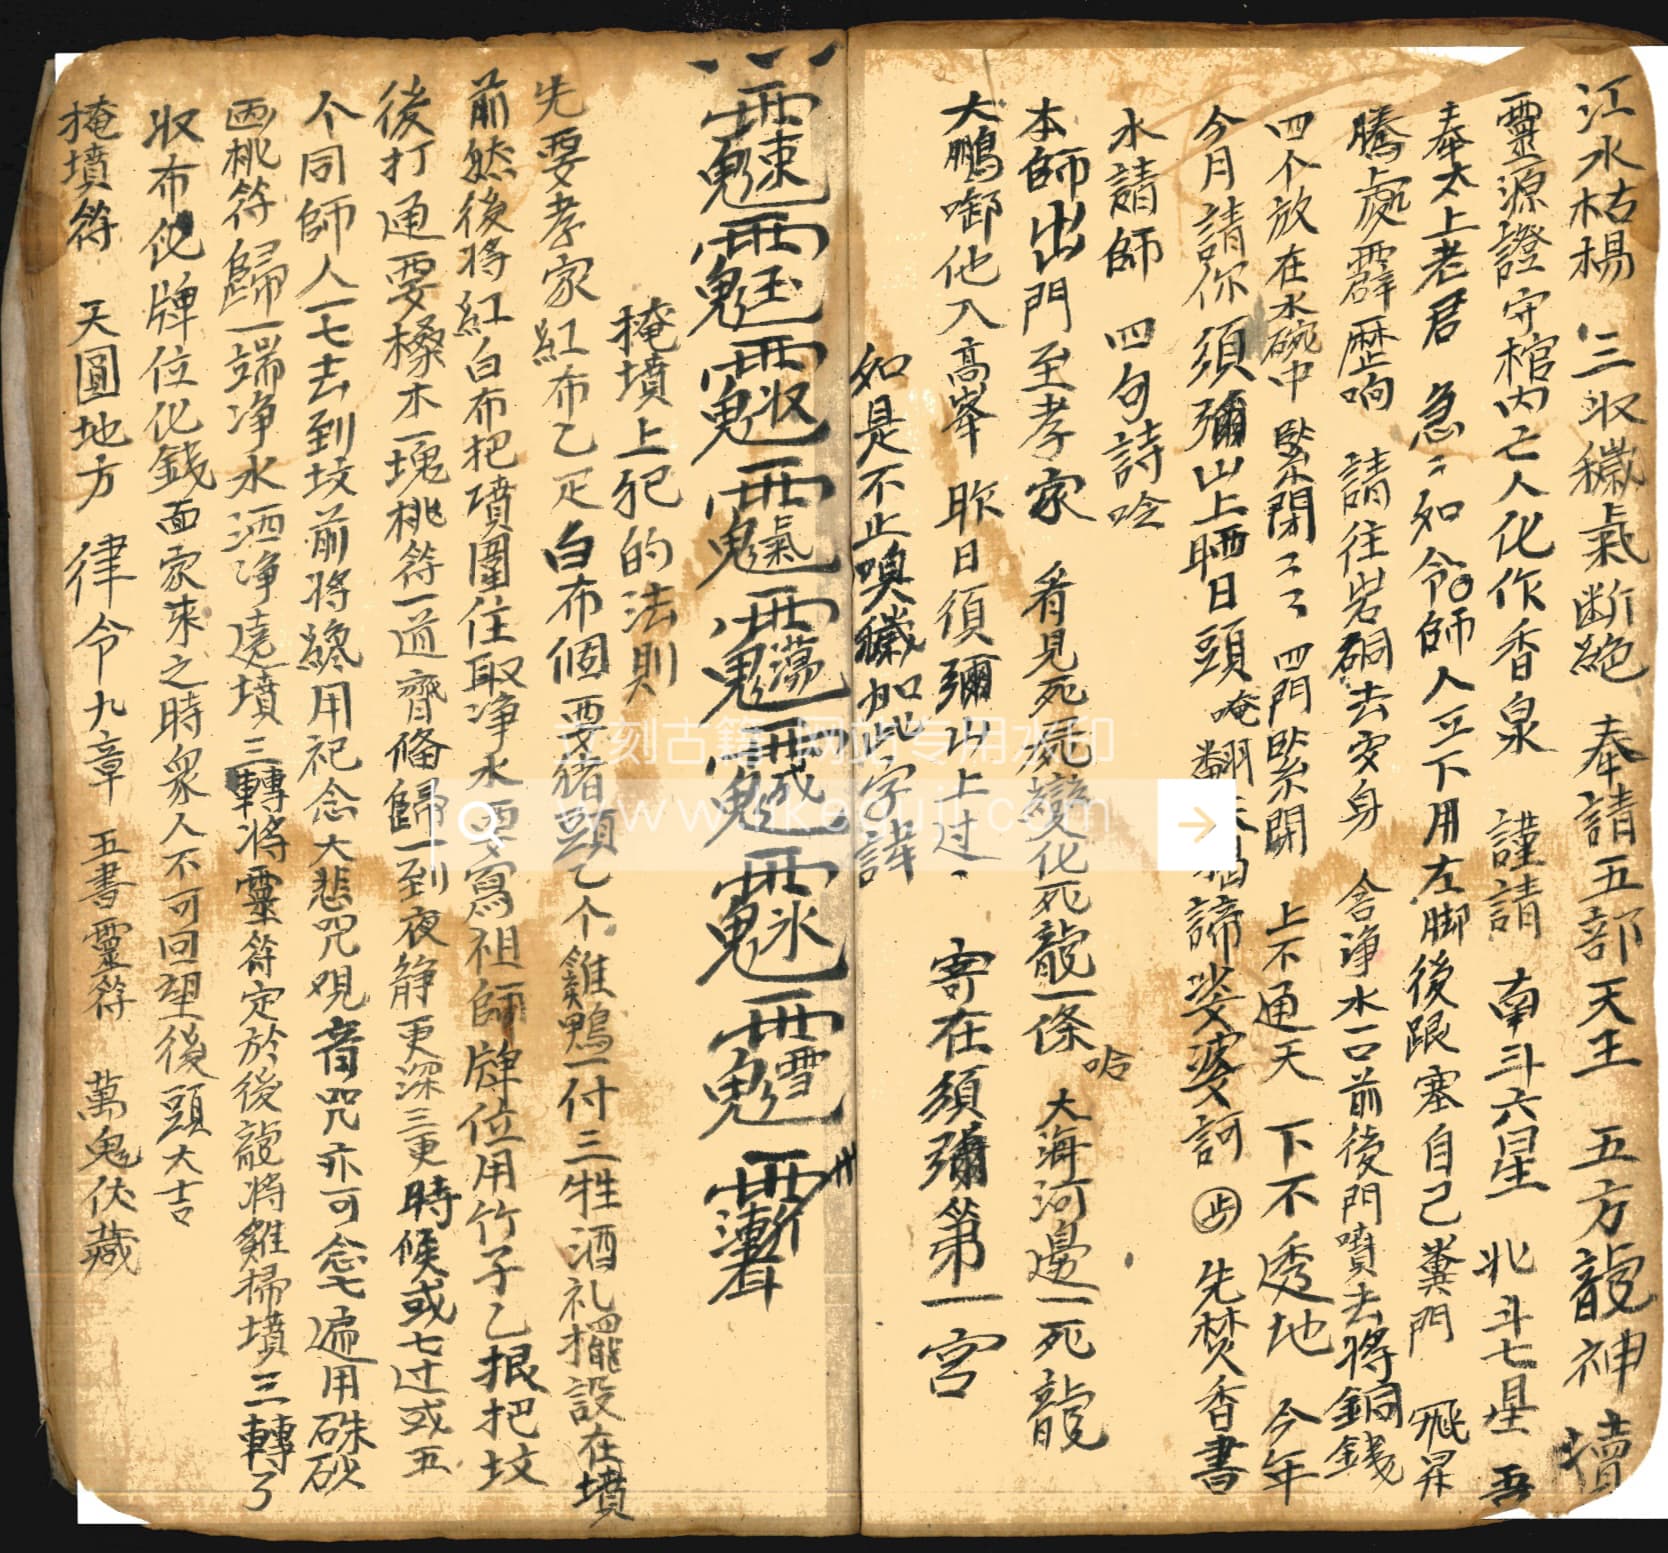 江水枯楊 三收穢氣断絶 奉請五部天王 五方龍神 牘
靈源證守棺内亡人化作香泉 謹請 南斗六星 北斗七星 吾
奉太上老君 急〻如令 師人立下用左脚後跟塞自己糞門 飛昇
騰處霹歷响 請往岩硐去安身 舍净水一口前後門噴去將銅錢
四个放在水碗中 緊閉〻〻 四門緊閉 上不通天 下不透地 今年
今月請你須彌山上晒日頭 唵 諦娑婆訶 先焚香書
水請師 四句詩唸
本師出門至孝家 看見死屍變化死龍一條 哈 大海河邊一死龍
大鵬啣他入高峯 昨日須彌山上过 寄在須彌第一宮
如是不止嗅穢加此字諱
掩墳上犯的法則
先要孝家紅布乙疋白布個 要猪頭乙个 雞鴨一付三牲酒礼擺設在墳
前然後将紅白布把墳圍住取净水 要寫祖師牌位用竹子乙根把坟
後打通要橡木一塊桃符一道齊俻歸一到夜静更深三更時候或七过或五
个同師人一七去到坟前将 用祀念大悲咒观音咒亦可念七遍用硃砂
画桃符歸一端净水洒净遶墳三轉将靈符定於後龍将雞掃墳三轉了
收布化牌位化錢面家来之時衆人不可回望後頭大吉
掩墳符 天圓地方 律令九章 五書靈符 萬鬼伏藏
立刻古籍 网站专用水印